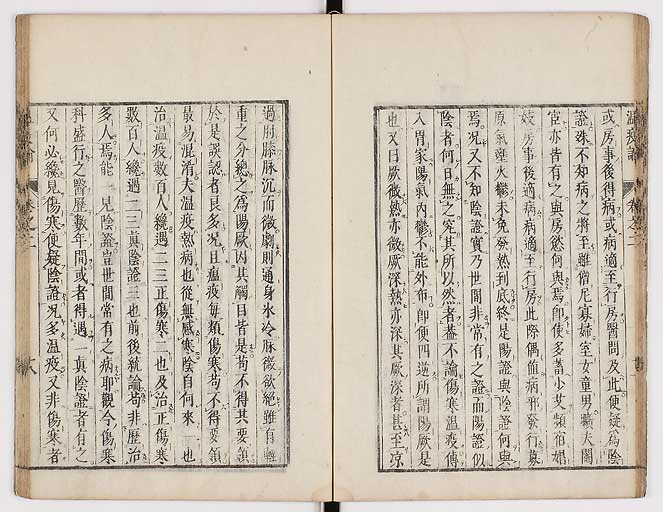 或房事後得病或病適至行房醫問及此便疑為陰
證殊不知病之將至雖僧尼寡婦室女童男曠夫閹
宦亦皆有之與房慾何與焉即使多蓄少艾頻宿娼
妓房事後適病病適至行房此際偶值病邪發行募
原氣壅火鬱未免發熱到底終是陽證與陰證何與
焉况又不知陰證實乃世間非常有之證而陽證似
陰者何日無之究其所以然者蓋不論傷寒溫疫傳
入胃家陽氣內鬱不能外布即便四逆所謂陽厥是
也又曰厥微熱亦微厥深熱亦深其厥深者甚至凉
過肘膝脉沉而微劇則通身氷冷脉微欲絕雖有輕
重之分總之為陽厥因其觸目皆是苟不得其要領
於是誤認者良多况且瘟疫每類傷寒苟不得要領
最易混淆夫溫疫熱病也從無感寒陰自何來一也
治溫疫數百人纔遇二三正傷寒二也及治正傷寒
數百人纔遇二三真陰證三也前後統論苟非歷治
多人焉能一見陰證豈世間常有之病耶觀今傷寒
科盛行之醫歷數年間或者得遇一真陰證者有之
又何必纔見傷寒便疑陰證况多溫疫又非傷寒者